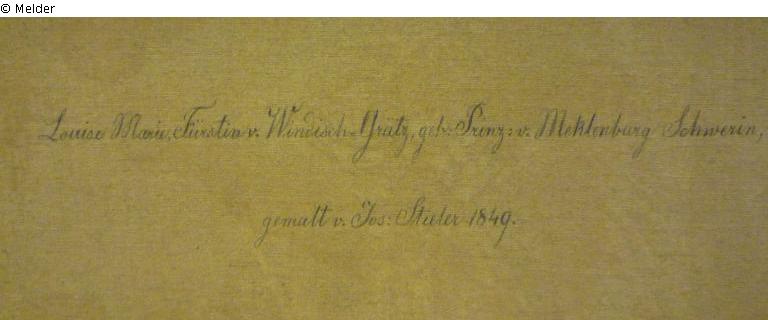 © Melder
Louise Marie, Fürstin v. Windisch-Grätz, geb: Prinz: v. Meklenburg Schwerin,
gemalt v. Jos: Stieler 1849.